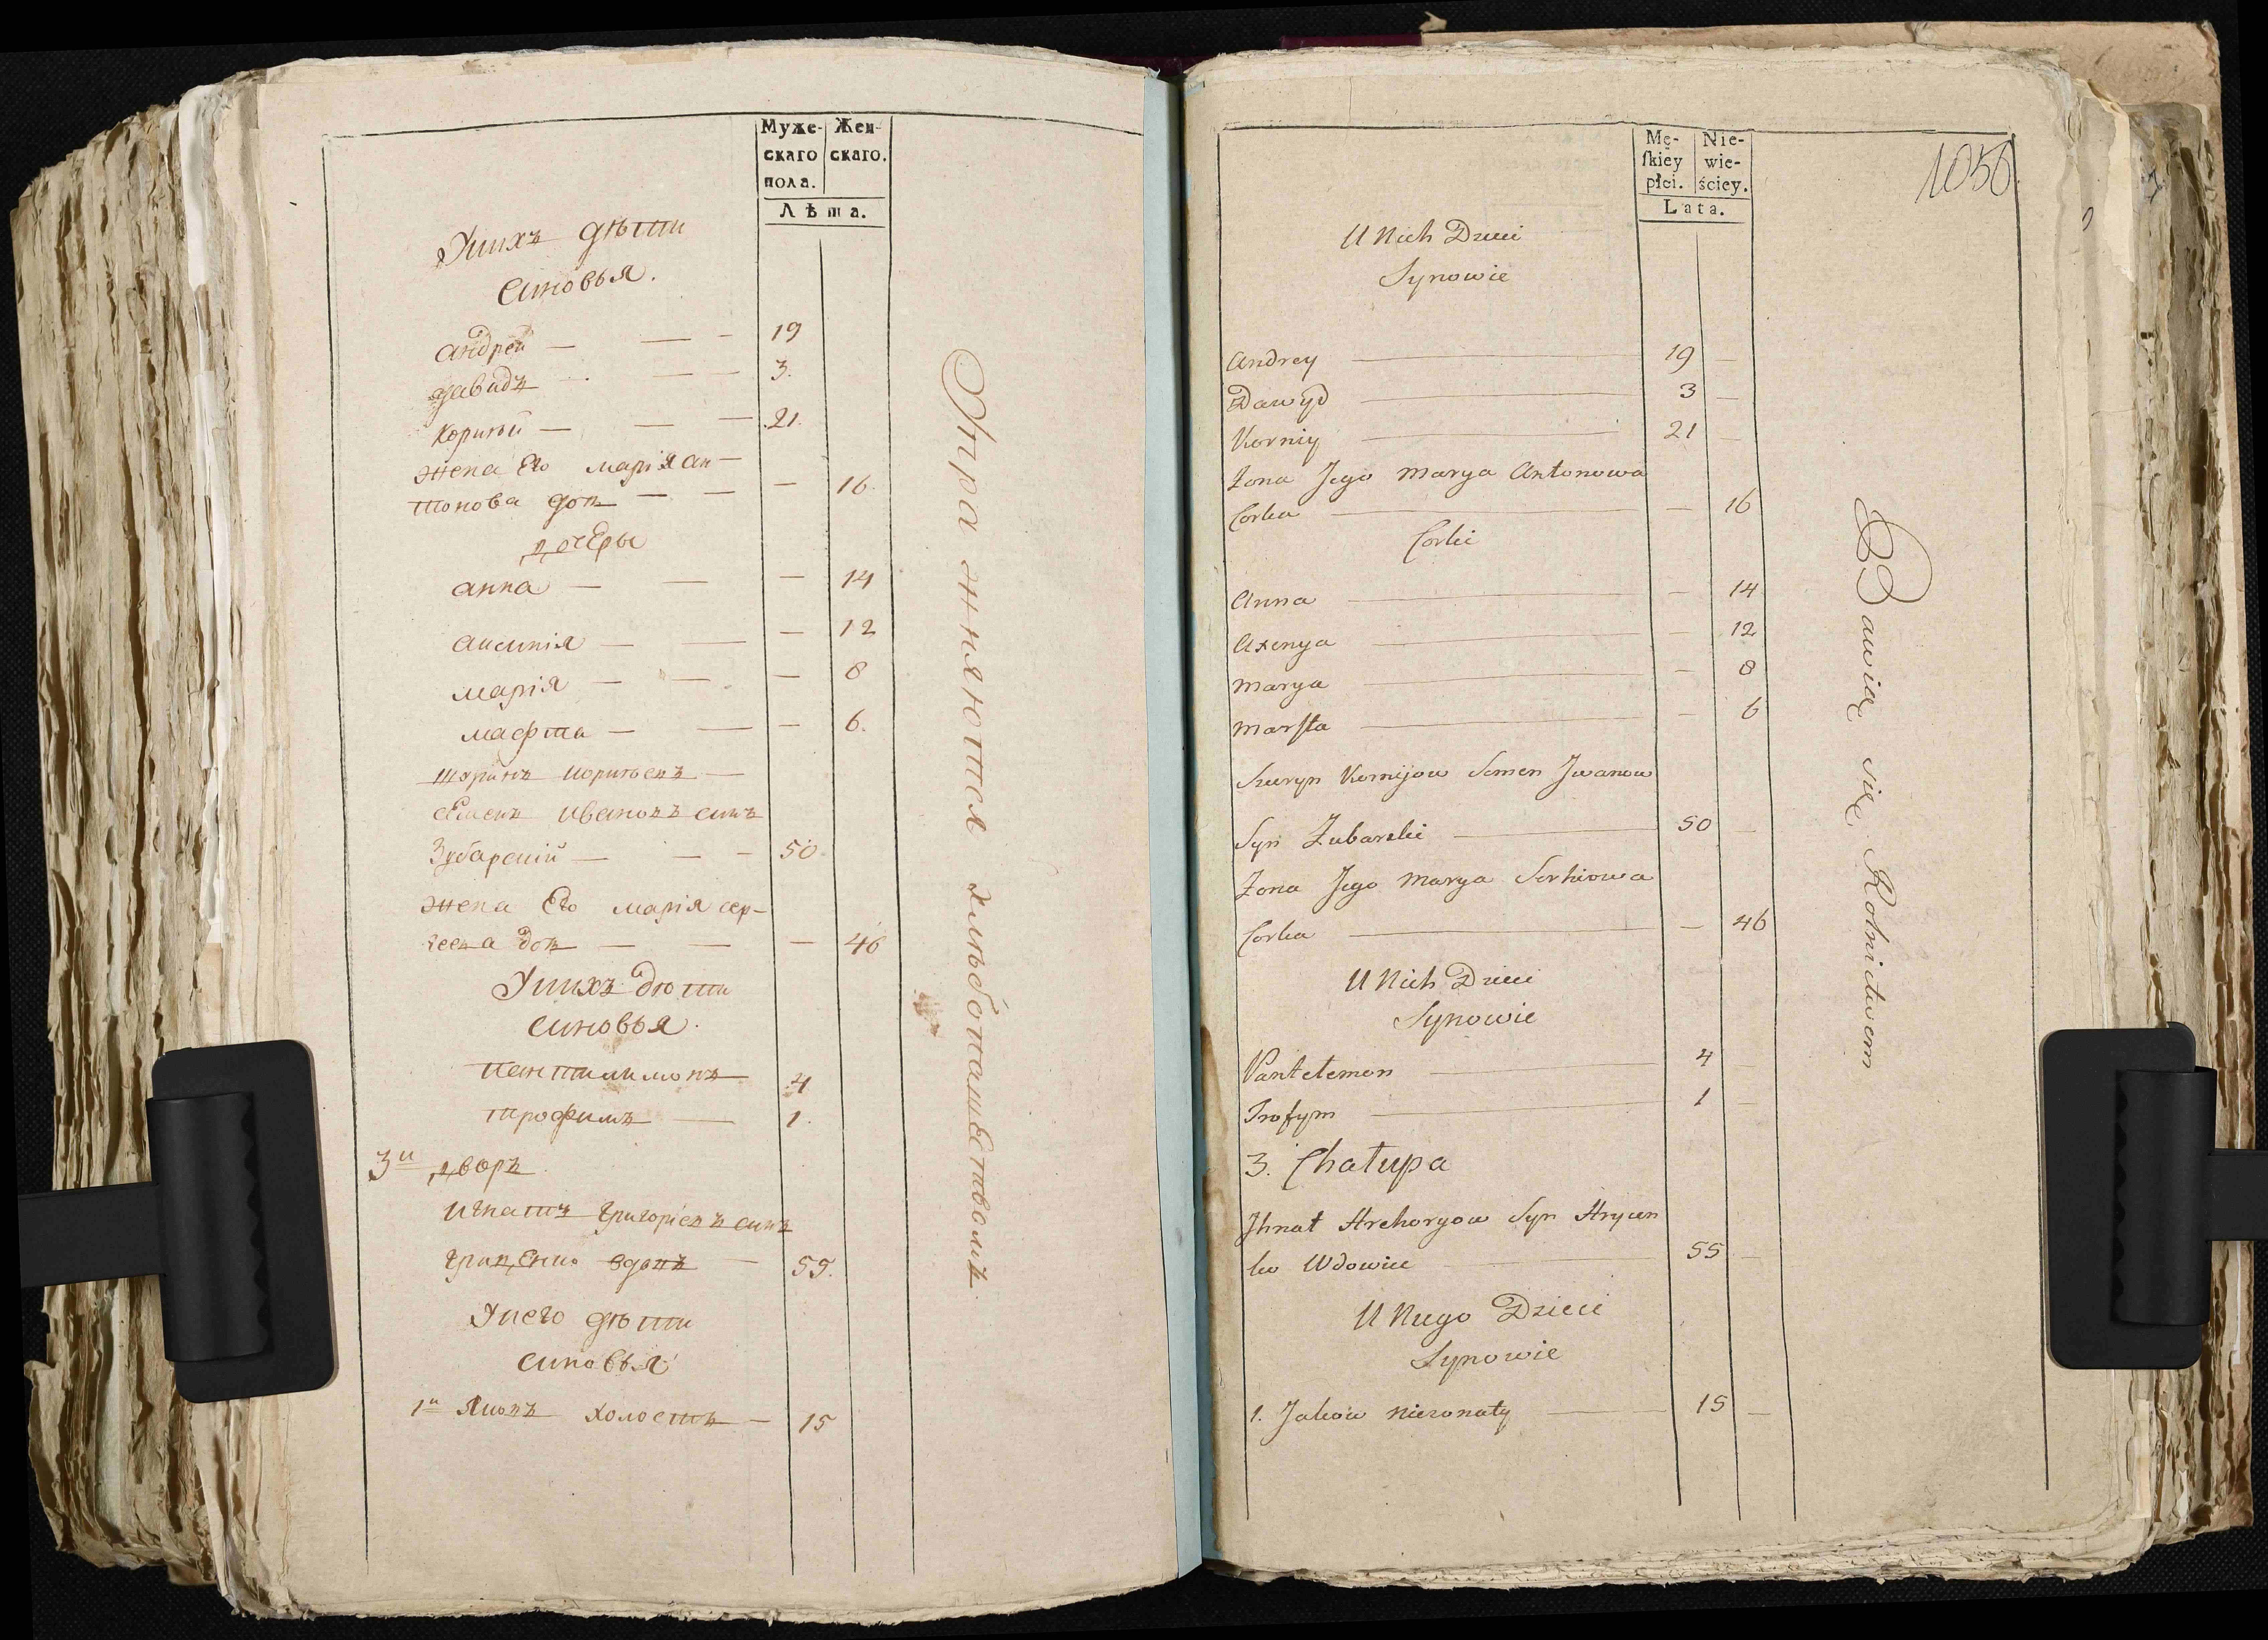 Муже- Жен-
скаго скаго.
пола.
Лѣта.
Унихъ дѣти
Синовья.
Андрей — — — 19
Давидъ — — 3.
Корнѣй — — — 21.
жена Его марія ан-
тонова дочь — — — 16.
дочеры
анна — — — 14
аксинія — — — 12
марія — — — 8
марта — — — 6.
шуринъ корнѣевъ —
семенъ ивановъ синъ
Зубарскій — — — 50
жена Его марія сер-
геева дочь — — — 46
Унихъ дѣти
синовья.
пантилимонъ 4.
трофимъ — 1.
3й дворъ
игнатъ григоріевъ синъ
гриценко вдовъ — 55.
Унего дѣти
синовья
1й яковъ холостъ — 15
Упражняются хлѣбопашествомъ.
Mę- Nie-
skiey wie-
płci. ściey.
Lata.
1056
U Nich Dzieci
Synowie
Andrey — 19 —
Dawyd — 3 —
Korniy — 21 —
Żona Jego Marya Antonowa
Corka — — 16
Corki
Anna — — 14
Axenya — — 12
Marya — — 8
Marfta — — 6
Szuryn Kornijow Semen Jwanow
Syn Zubarski — 50 —
Żona Jego Marya Serhiowa
Corka — — 46
U Nich Dzieci
Synowie
Pantelemon — 4 —
Trofym — 1 —
3. Chałupa
Jhnat Hrehoryow Syn Hrycen
ko Wdowiec — 55 —
U Niego Dzieci
Synowie
1. Jakow nieżonaty — 15 —
Bawią się Rolnictwem